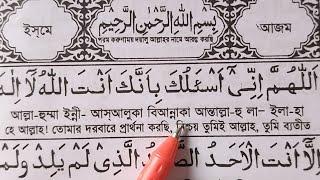 ইসমে
بِسْمِ اللهِ الرَّحْمٰنِ الرَّحِيْمِ
আজম
পরম করুণাময় দয়ালু আল্লাহর নামে আরম্ভ করছি
اَللّٰهُمَّ اِنِّىْ اَسْئَلُكَ بِاَنَّكَ اَنْتَ اللهُ لَا اِلٰهَ
আল্লা-হুম্মা ইন্নী- আস্আলুকা বিআন্নাকা আন্তাল্লা-হু লা- ইলা-হা
হে আল্লাহ! তোমার দরবারে প্রার্থনা করছি, তুমিই আল্লাহ, তুমি ব্যতীত
اِلَّا اَنْتَ الْاَحَدُ الَّذِىْ لَمْ يَلِدْ وَلَمْ